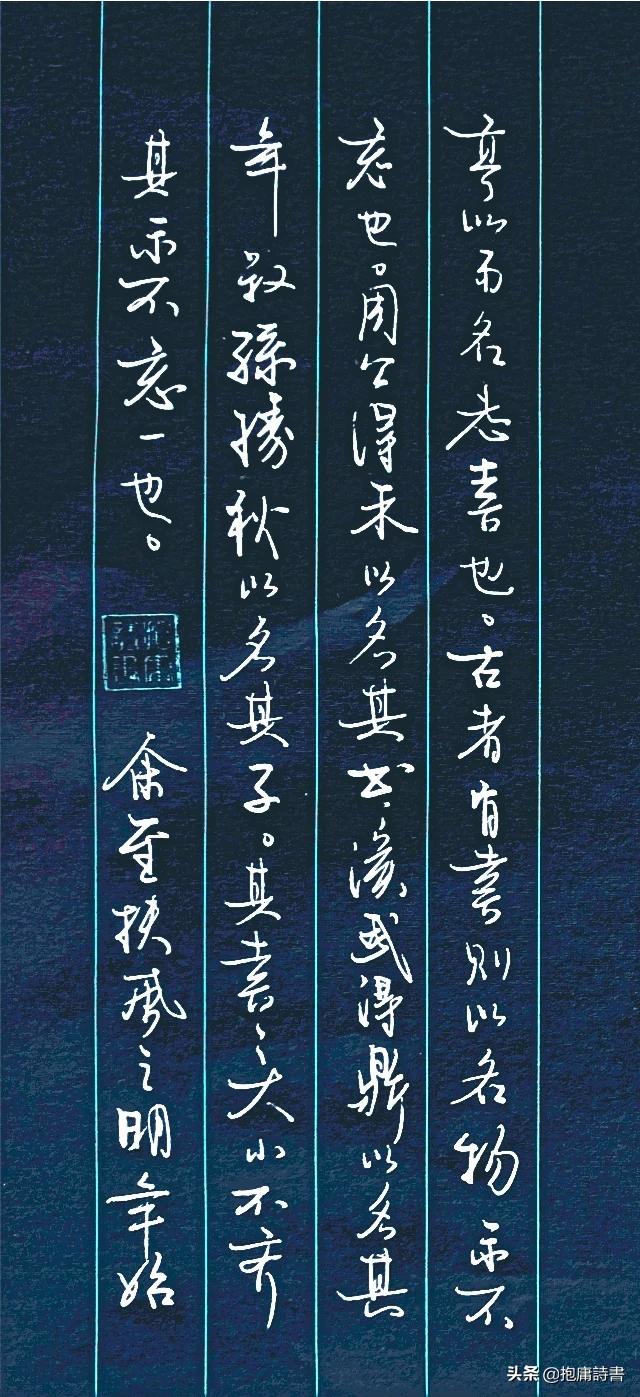 亭以雨名志喜也。古者有喜則以名物示不
忘也。周公得禾以名其书、漢武得鼎以名其
年叔孫勝狄以名其子。其喜之大小不齐
其示不忘一也。余至扶风之明年始
头条 @抱庸詩書